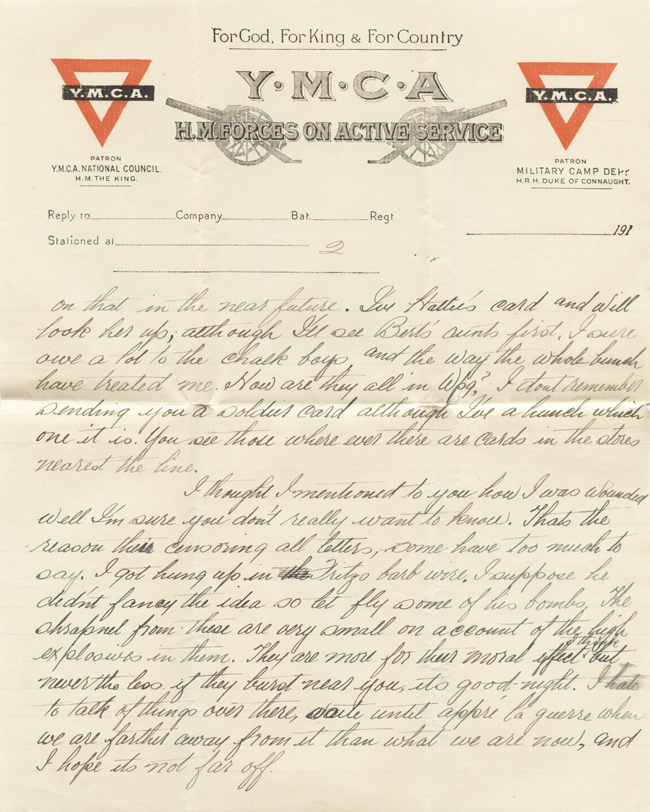 For God, For King & For Country
Y·M·C·A
H.M. FORCES ON ACTIVE SERVICE
Y.M.C.A.
PATRON
Y.M.C.A. NATIONAL COUNCIL.
H.M. THE KING.
Y.M.C.A.
PATRON
MILITARY CAMP DEPT
H.R.H. DUKE OF CONNAUGHT.
Reply to Company Bat. Regt
Stationed at 2
191
on that in the near future. I've Hattie's card and will
look her up, although I'll see Bert's aunts first. I sure
owe a lot to the chalk boys, and the way the whole bunch
have treated me. How are they all in Wpg? I dont remember
sending you a soldier card although I've a hunch which
one it is. You see those where ever there are cards in the stores
nearest the line.
I thought I mentioned to you how I was wounded
well I'm sure you don't really want to know. Thats the
reason their censoring all letters, some have too much to
say. I got hung up in the Fritzs barb wire. I suppose he
didn't fancy the idea so let fly some of his bombs. The
shrapnel from these are very small on account of the high
explosives in them. They are more for their moral effect but
never the less if they burst near you, its good-night. I hate
to talk of things over there, until appre la guerre when
we are farther away from it than what we are now, and
I hope its not far off.